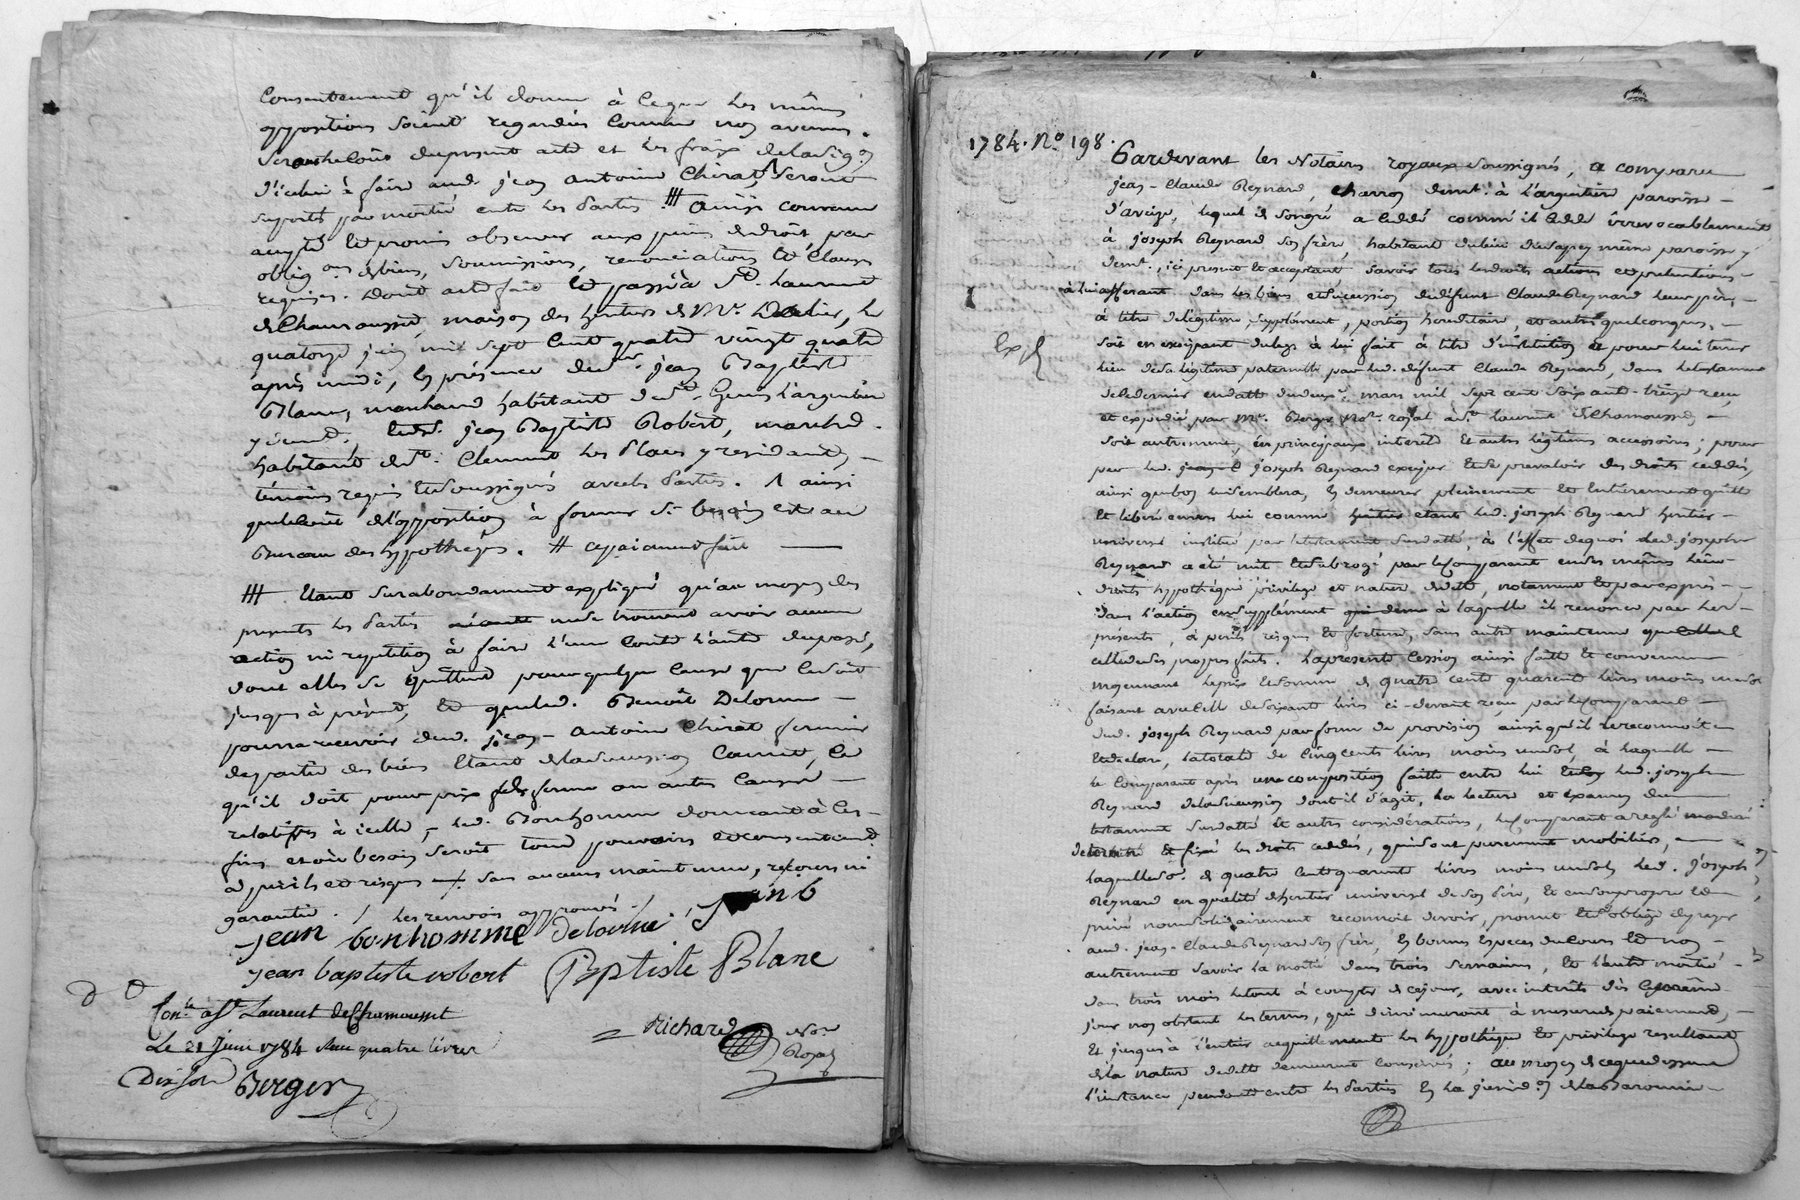 Consentement qu'il donne à ceque les mêmes
oppositions soient regardées comme non avenues.
Sera le coût du present acte et les fraix de la sig.on
d'icelui à faire aud. jean antoine Chirat, seront
suportés par moitié entre les parties. /// ainsi convenu
accepté et promis observer aux peines de droit par
oblig.ons de biens, soumissions, renonciations et clauses
requises. Dont acte fait et passé à St. Laurent
de Chamousset, maison des heritiers de Mr.
quatorze juin mil sept cent quatre vingt quatre
après midi, en présence de sr. jean Baptiste
Blanc, marchand habitant de St. Genis l'argentiere
y demt., et sr. jean Baptiste Robert, marchd.
habitant de St. Clement les Places y residant,
témoins requis et soussignés avec les parties. ainsi
que le coût de l'opposition à former si besoin est au
Bureau des hypotheques. # cepaiement fait
/// Etant surabondamment expliqué qu'au moyen des
presents les parties ne se trouvent avoir aucune
action ni repetition à faire l'une contre l'autre du passé,
dont elles se quittent pour quelque cause que ce soit
jusques à présent, et que led. Benoît Delorme
pourra recevoir dud. jean-antoine Chirat fermier
de partie des biens étant de la succession, ce
qu'il doit pour prix de ferme ou autres causes
relatives à icelle, led. Bonhomme donnant à ces
fins et où besoin seroit tout pouvoirs et consentement
à perils et risques sans aucune maintenue, recours ni
garantie. / les renvois approuvés.
jean bonhomme Delorme
jean baptiste robert Baptiste Blanc
Richard Nore
Royal
Con.lé à St Laurent de Chamousset
Le 21 juin 1784 Reçu quatre livres
Dix sols Berger
1784. No. 198.
Pardevant les Notaires royaux soussignés, a comparu
jean-Claude Reynard, charron demt. à l'argentiere paroisse
d'aveize, lequel de son gré a cédé comme il cede irrevocablement
à joseph Reynard son frère, habitant du lieu même paroisse y
demt., ici present et acceptant savoir tous les droits actions et pretentions
à lui afferant dans les biens et succession de défunt Claude Reynard leur père,
à titre de légitime, supplément, portion hereditaire, et autres quelconques,
soit en exerçant du legs à lui fait à titre d'institution et pour lui tenir
Exp.
lieu de sa légitime paternelle par led. défunt Claude Reynard, dans le testament
de ce dernier en datte du deux mars mil sept cent soixante-treize reçu
et expedié par Mr. Berger nore. royal à St. laurent de Chamousset
soit autrement, en principaux, interets et autres légitimes accessoires; pour
par led. joseph Reynard exercer et se prevaloir des droits cedés,
ainsi que bon lui semblera, en demeurer pleinement et entierement quitte
et libéré envers lui comme led. joseph Reynard heritier
universel institué par le testament susdatté, à l'effet de quoi led. joseph
Reynard a été mit et subrogé par le comparant en des mêmes lieux
droits hypothéque privilege et nature de dette, notamment et par exprès
dans l'action en supplément à laquelle il renonce par les
présents, à perils risques et fortune, sans autre maintenue que
celle de ses propres faits. La presente Cession ainsi faite et convenue
moyennant le prix et somme de quatre cents quarante livres moins un sol
faisant avec celle de soixante livres ci-devant reçue par le comparant
dud. joseph Reynard par forme de provision ainsi qu'il le reconnoît
et declare, la totale de Cinq cents livres moins un sol, à laquelle
le Comparant après une composition faite entre lui et led. joseph
Reynard de la succession dont il s'agit, la lecture et examen du
testament susdatté et autres considérations, le comparant a reglé
determiné et fixé les droits cedés, qui sont purement mobiliés,
laquelle so.e de quatre cents quarante livres moins un sol led. joseph
Reynard en qualité d'heritier universel de son père, et en son propre et
privé nom solidairement reconnoît devoir, promet et s'oblige de payer
aud. jean-Claude Reynard son frère, en bonnes especes du cours et non
autrement savoir la moitié dans trois semaines, et l'autre moitié
dans trois mois le tout à compter de ce jour, avec interêts dès ce même
jour non obstant les termes, qui diminueront à mesure des paiements,
et jusques à l'entier acquittement les hypothéque et privilege resultants
de la nature de dette demeurent conservés; au moyen de ce que dessus
l'instance pendante entre les parties en la jurid.on de la Baronnie